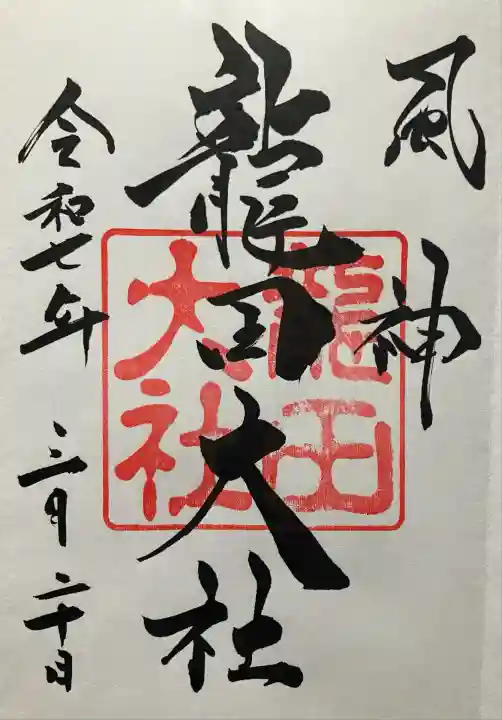 風神
龍田大社
龍田大社
令和七年三月二十日